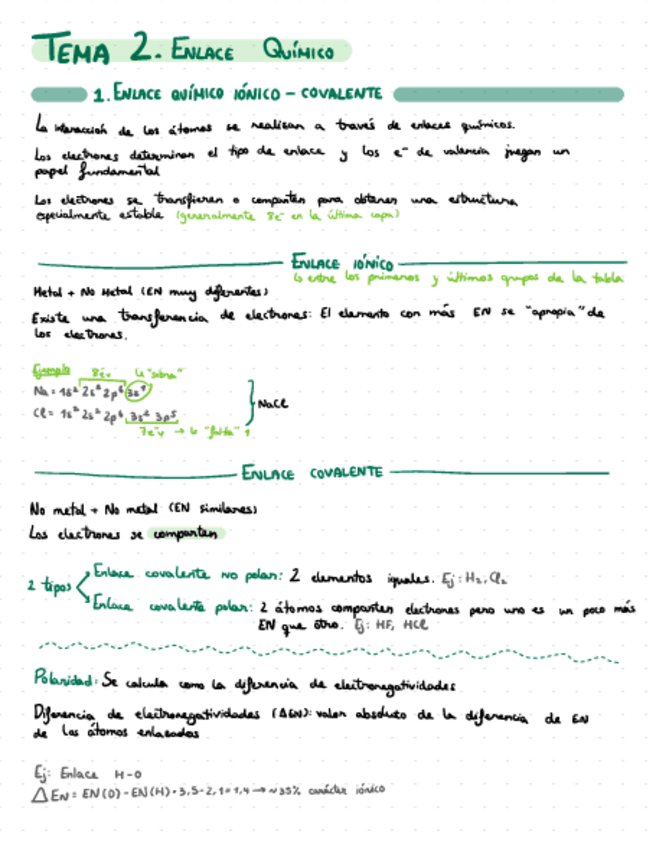 TEMA 2. ENLACE QUÍMICO
1. ENLACE QUÍMICO IÓNICO - COVALENTE
La interacción de los átomos se realizan a través de enlaces químicos.
Los electrones determinan el tipo de enlace y los e⁻ de valencia juegan un
papel fundamental
Los electrones se transfieren o comparten para obtener una estructura
especialmente estable (generalmente 8e⁻ en la última capa)
ENLACE IÓNICO
↳ entre los primeros y últimos grupos de la tabla
Metal + No Metal (EN muy diferentes)
Existe una transferencia de electrones: El elemento con más EN se "apropia" de
los electrones.
Ejemplo 8e⁻v le "sobra"
Na = 1s² 2s² 2p⁶ 3s¹
Cl = 1s² 2s² 2p⁶ 3s² 3p⁵
NaCl
7e⁻v → le "falta" 1
ENLACE COVALENTE
No metal + No metal (EN similares)
Los electrones se comparten
2 tipos
Enlace covalente no polar: 2 elementos iguales. Ej: H₂, Cl₂
Enlace covalente polar: 2 átomos comparten electrones pero uno es un poco más
EN que otro. Ej: HF, HCl
Polaridad: Se calcula como la diferencia de electronegatividades
Diferencia de electronegatividades (ΔEN): valor absoluto de la diferencia de EN
de los átomos enlazados
Ej: Enlace H-O
ΔEN = EN(O) - EN(H) = 3,5-2,1 = 1,4 → ~35% carácter iónico